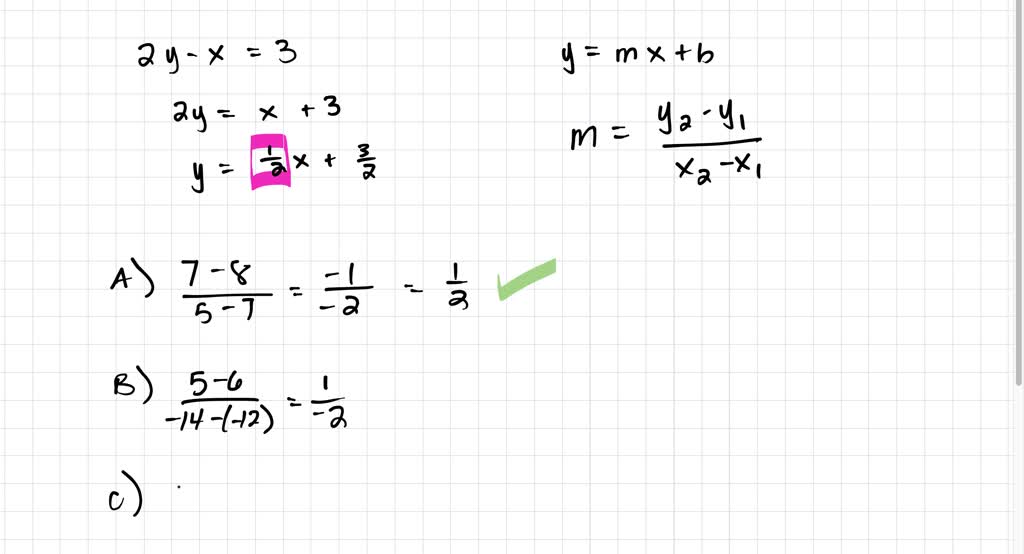 2y - x = 3
2y = x + 3
y = 1/2 x + 3/2
y = mx + b
m = (y₂ - y₁)/(x₂ - x₁)
A) (7 - 8)/(5 - 7) = -1/-2 = 1/2 ✓
B) (5 - 6)/(-14 - (-12)) = 1/-2
C)